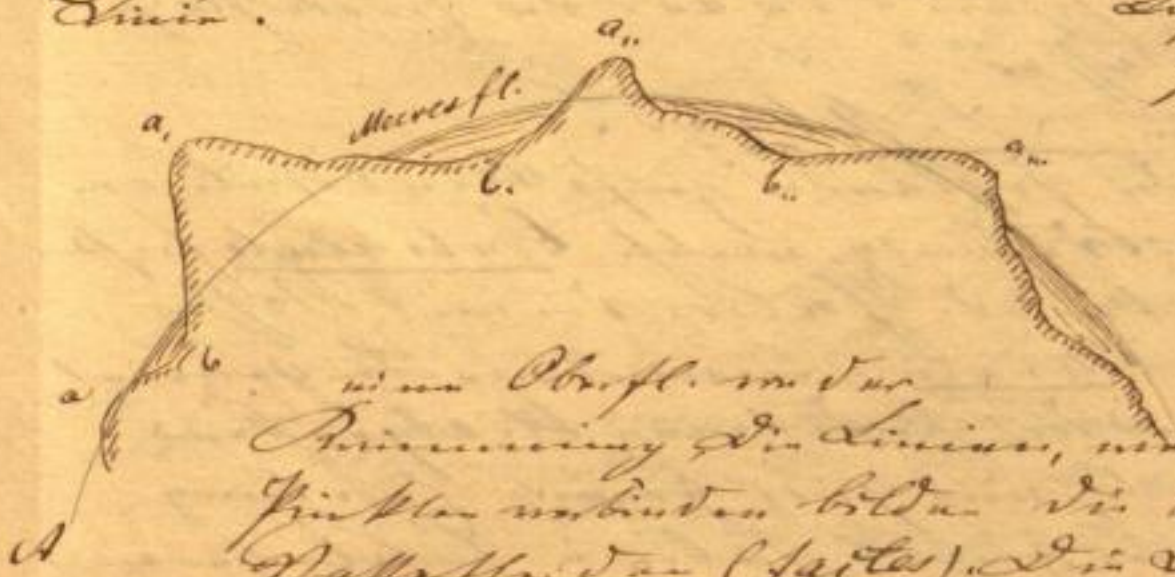 Linie.
a,,
Meeresfl.
a,
a,,,
b,
b,,
b
a
eine Oberfl. von der
Krümmung Die Linien,
Punkte verbinden bilden die
A
(faîtes). Die